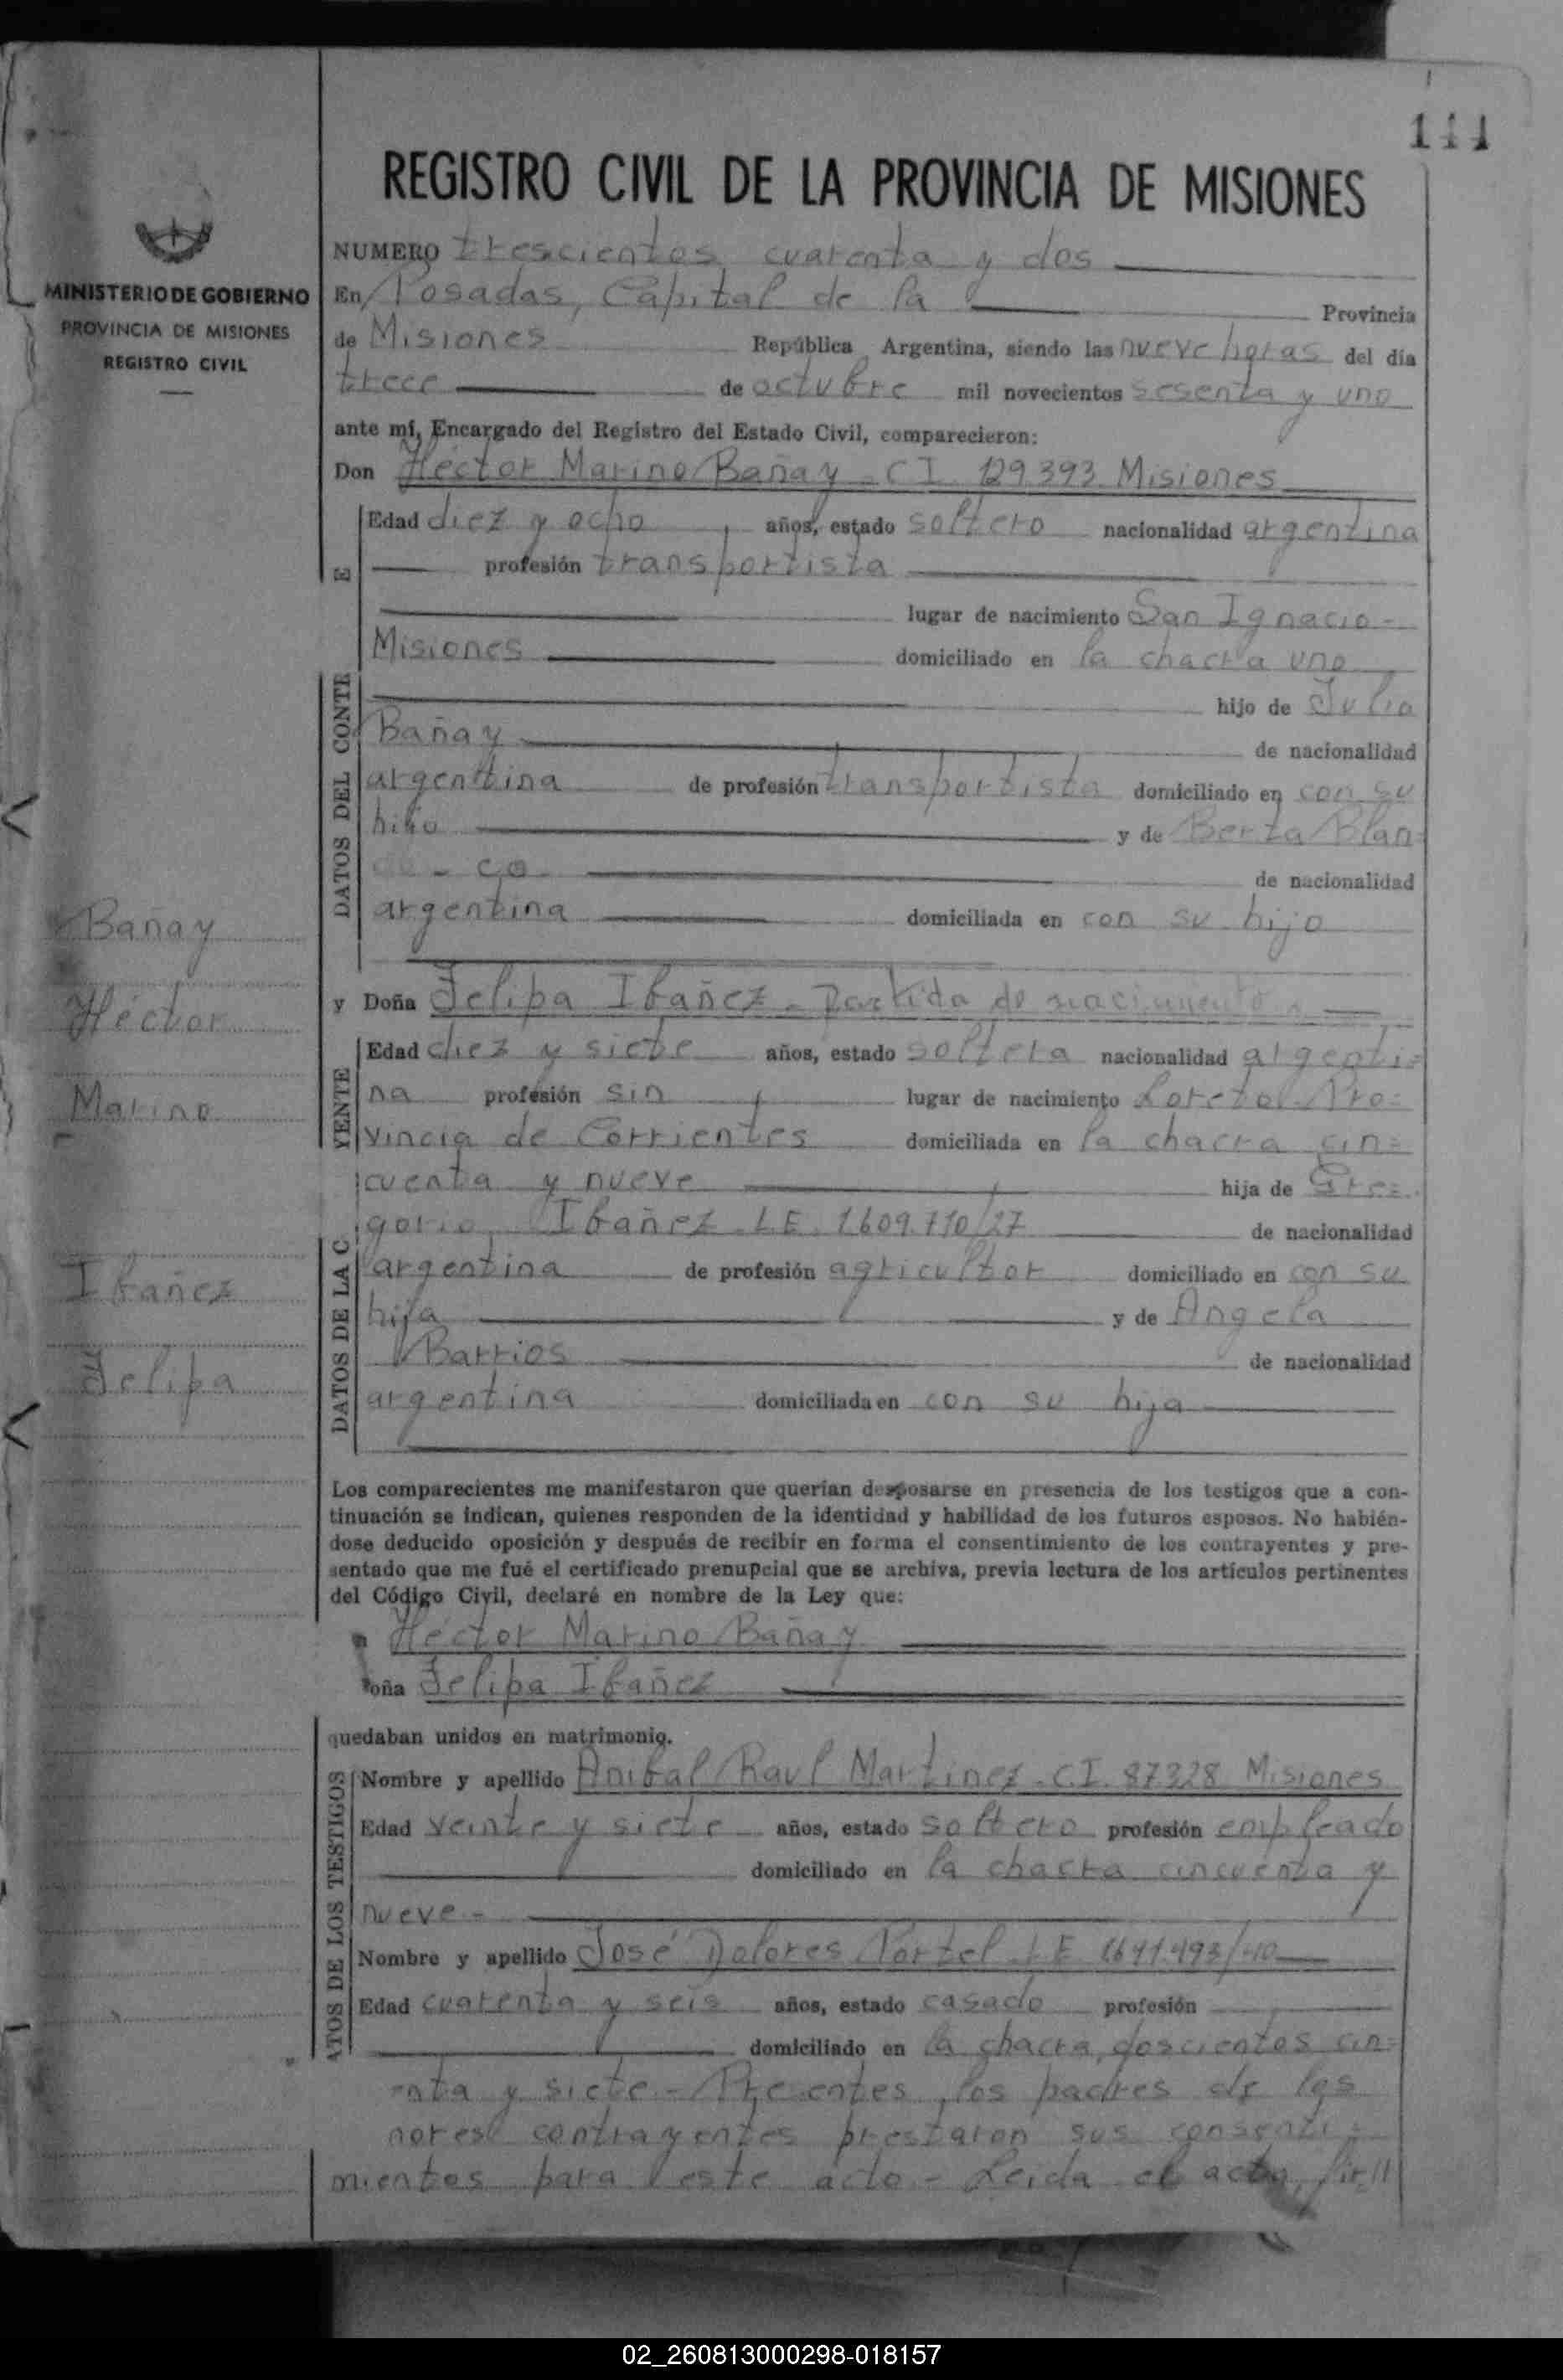 111
REGISTRO CIVIL DE LA PROVINCIA DE MISIONES
MINISTERIO DE GOBIERNO
PROVINCIA DE MISIONES
REGISTRO CIVIL
NUMERO trescientos cuarenta y dos
En Posadas, Capital de la Provincia
de Misiones República Argentina, siendo las nueve horas del día
trece de octubre mil novecientos sesenta y uno
ante mí, Encargado del Registro del Estado Civil, comparecieron:
Don Héctor Marino Bañay - CI. 129.393 Misiones
Edad diez y ocho años, estado soltero nacionalidad argentina
profesión transportista
lugar de nacimiento San Ignacio -
Misiones domiciliado en la chacra uno
hijo de Julio
Bañay de nacionalidad
argentina de profesión transportista domiciliado en con su
hijo y de Berta Blan=
co de nacionalidad
argentina domiciliada en con su hijo
DATOS DEL CONTE
E
Bañay
Héctor
Marino
y Doña Felipa Ibañez - Partida de nacimiento
Edad diez y siete años, estado soltera nacionalidad argenti=
na profesión sin lugar de nacimiento Loreto Pro=
vincia de Corrientes domiciliada en la chacra cin=
cuenta y nueve hija de Gre=
gorio Ibañez LE. 1609.710/27 de nacionalidad
argentina de profesión agricultor domiciliado en con su
hija y de Angela
Barrios de nacionalidad
argentina domiciliada en con su hija
DATOS DE LA C
YENTE
Ibañez
Felipa
Los comparecientes me manifestaron que querían desposarse en presencia de los testigos que a con-
tinuación se indican, quienes responden de la identidad y habilidad de los futuros esposos. No habién-
dose deducido oposición y después de recibir en forma el consentimiento de los contrayentes y pre-
sentado que me fué el certificado prenupcial que se archiva, previa lectura de los artículos pertinentes
del Código Civil, declaré en nombre de la Ley que:
n Héctor Marino Bañay
oña Felipa Ibañez
quedaban unidos en matrimonio.
Nombre y apellido Anibal Raul Martinez - C.I. 87328 Misiones
Edad veinte y siete años, estado soltero profesión empleado
domiciliado en la chacra cincuenta y
nueve -
Nombre y apellido José Dolores Portel LE 1641.493/40
Edad cuarenta y seis años, estado casado profesión
domiciliado en la chacra doscientos cin=
enta y siete - Presentes los padres de los
nores contrayentes prestaron sus consenti=
mientos para este acto - Leida el acta, fir//
ATOS DE LOS TESTIGOS
02_260813000298-018157